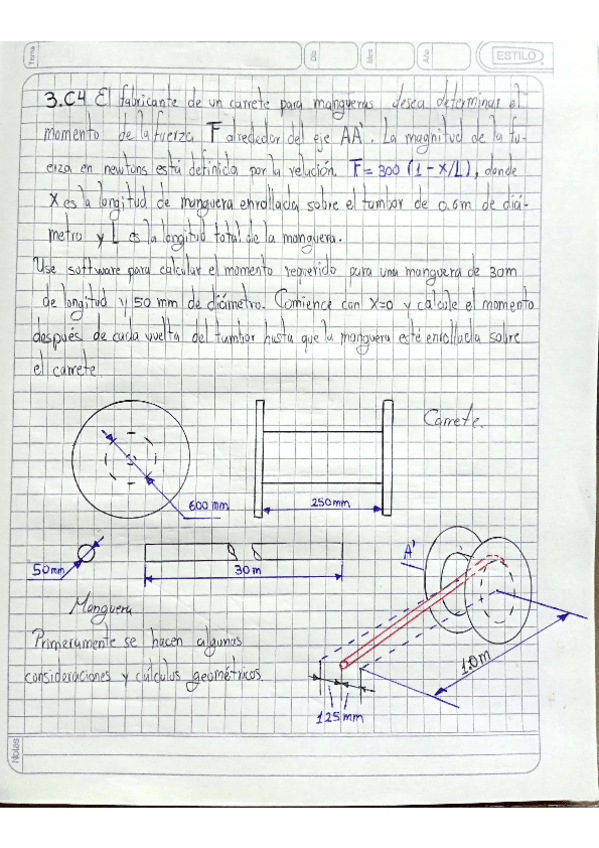 Tema
Día
Mes
Año
ESTILO
3.C4 El fabricante de un carrete para mangueras desea determinar el
momento de la fuerza F alrededor del eje AA'. La magnitud de la fu-
erza en newtons está definida por la relución. F = 300 (1 - X/L), donde
X es la longitud de manguera enrollada sobre el tambor de 0.6m de diá-
metro y L es la longitud total de la manguera.
Use software para calcular el momento requerido para una manguera de 30m
de longitud y 50 mm de diámetro. Comience con X=0 y calcule el momento
después de cada vuelta del tambor hasta que la manguera esté enrollada sobre
el carrete.
Carrete.
600 mm
250mm
A'
50mm
30m
Manguera
Primeramente se hacen algunas
consideraciones y cálculos geométricos.
1.0m
125mm
Notas